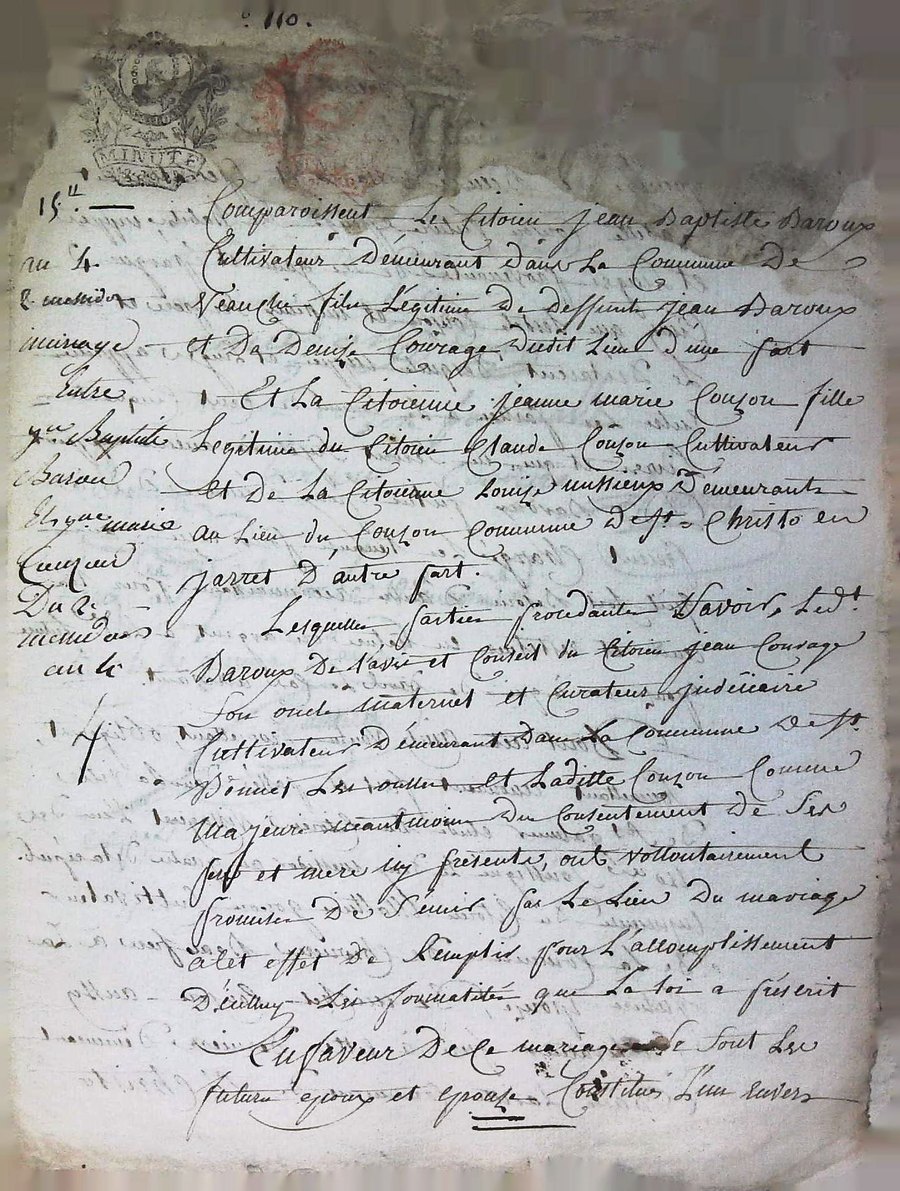 110.
MINUTE
15
an 4.
2 messidor
mariage
Entre
Jean Baptiste
Baroux
Et Jne marie
Couzon
Du 2
messidor
an 4
4
Comparoissent Le Citoien Jean Baptiste Baroux
Cultivateur Démeurant Dans La Commune De
Veauche fils Légitime de deffunt Jean Baroux
et De Denise Courage dudit Lieu d'une part
Et La Citoienne jeanne marie Couzon fille
Legitime du Citoien Claude Couzon Cultivateur
et De La Citoienne Louise mussieux Demeurants
au Lieu du Couzon Commune de St = Christo en
jarret D'autre part.
Lesquelles parties procedantes Savoir, Ledt
Baroux De l'avis et Conseil du Citoien jean Courage
Son oncle maternel et Curateur judiciaire
Cultivateur Démeurant Dans La Commune De St
Bonnet Les oulles et Laditte Couzon Comme
Majeure neantmoins Du Consentement De Ses
pere et mere icy presents, ont vollontairement
promises De S'émir par Le Lien Du mariage
a Cet effet De Remplir pour L'accomplissement
D'icelluy Les formalités que La Loi a préscrit
En faveur De Ce mariage Se sont Les
futurs epoux et epouse Constitués L'un envers